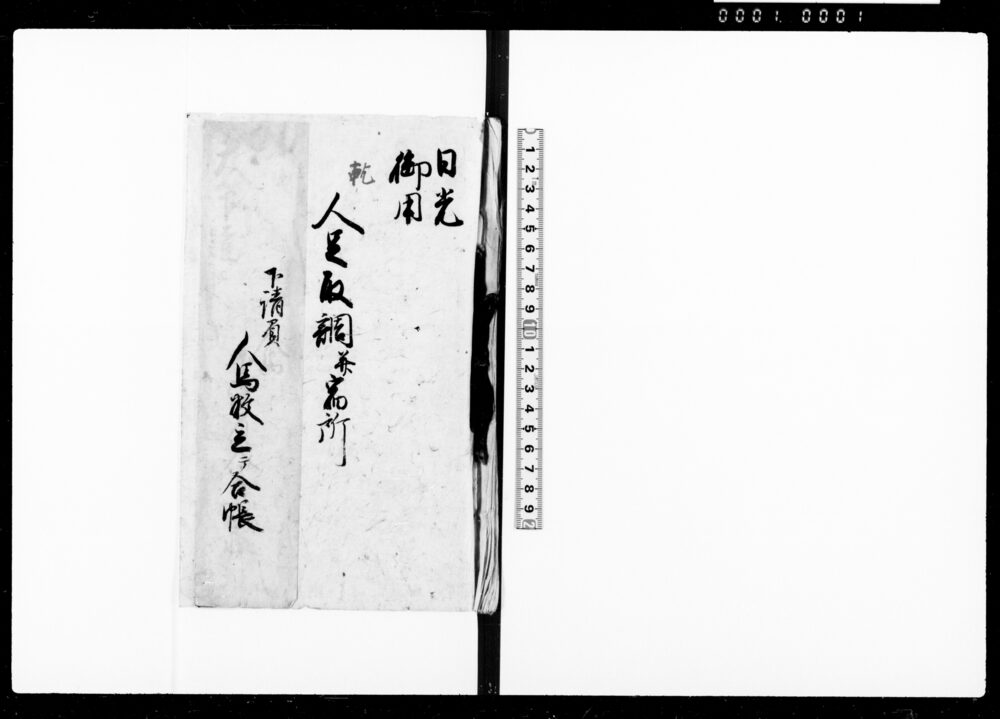 0001 0001
日光
御用
乾
人足取調并宿所
下請負
人馬牧立〆合帳
1 2 3 4 5 6 7 8 9 10 1 2 3 4 5 6 7 8 9 2